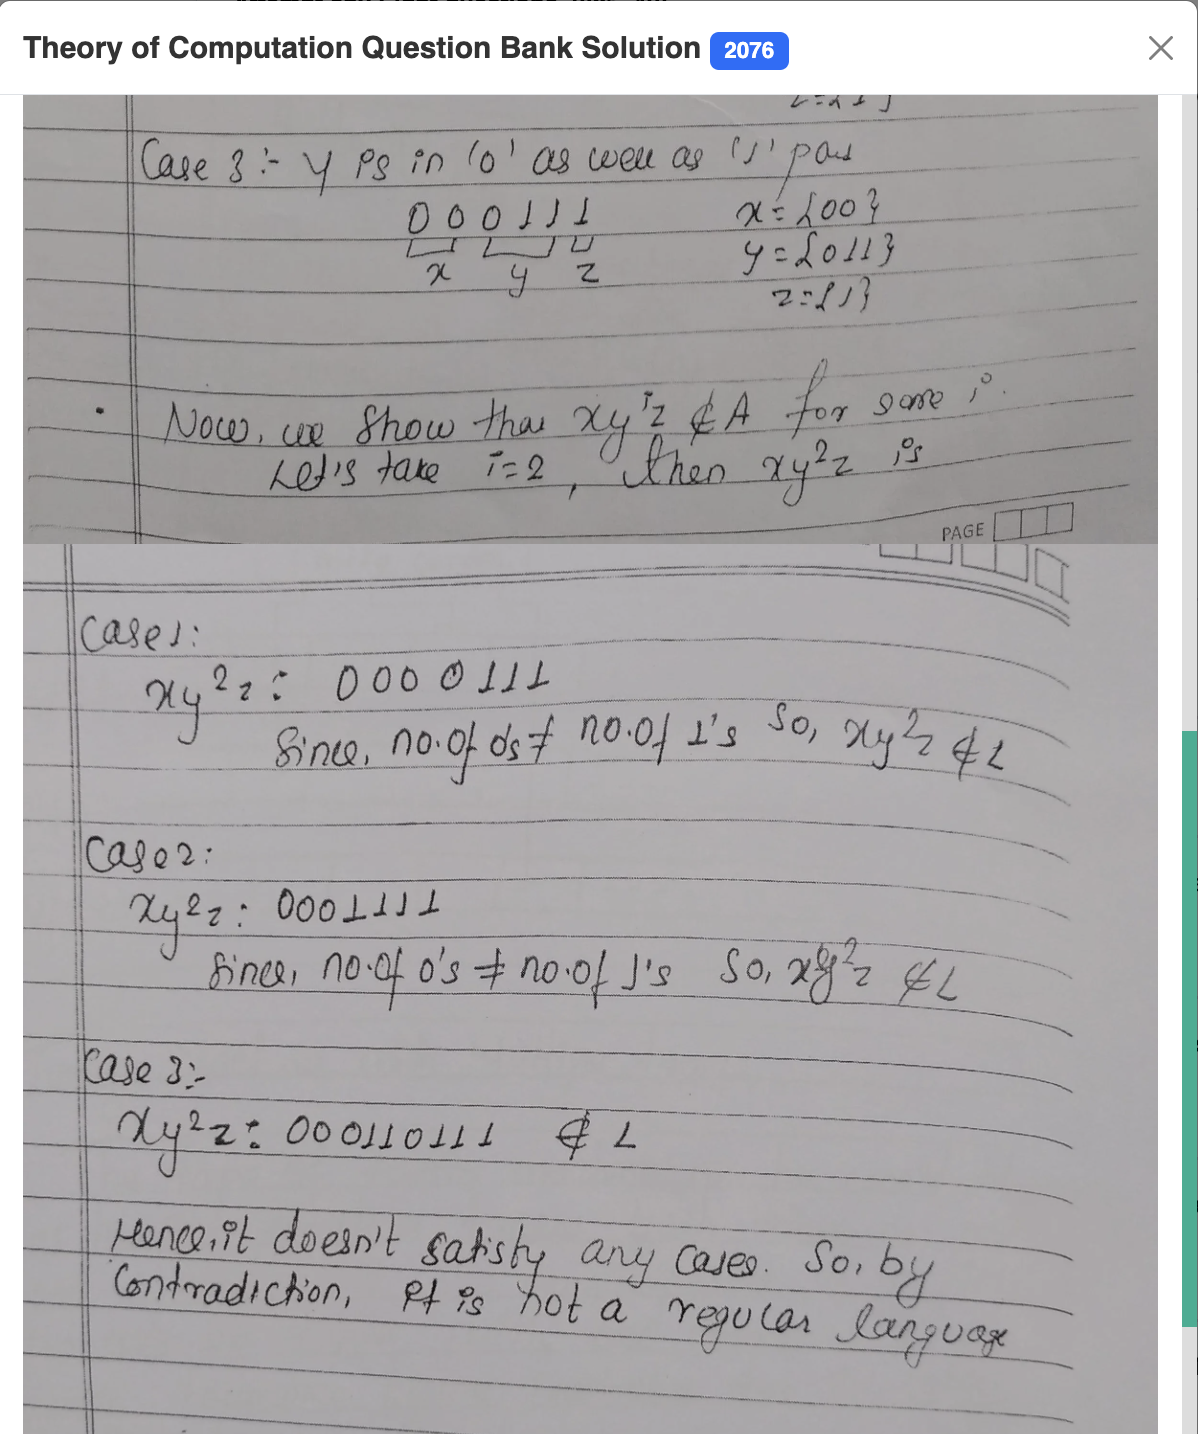 Theory of Computation Question Bank Solution 2076
Case 3 :- y is in '0' as well as '1' part
0 0 0 1 1 1 x = {00}
x y z y = {011}
z = {1}
Now, we show that xy^i z ∉ A for some i.
Let's take i = 2, then xy²z is
PAGE
Case 1:
xy²z : 0000111
Since, no. of 0's ≠ no. of 1's So, xy²z ∉ L
Case 2:
xy²z : 0001111
Since, no. of 0's ≠ no. of 1's So, xy²z ∉ L
Case 3:-
xy²z : 000110111 ∉ L
Hence, it doesn't satisfy any cases. So, by
Contradiction, it is not a regular language